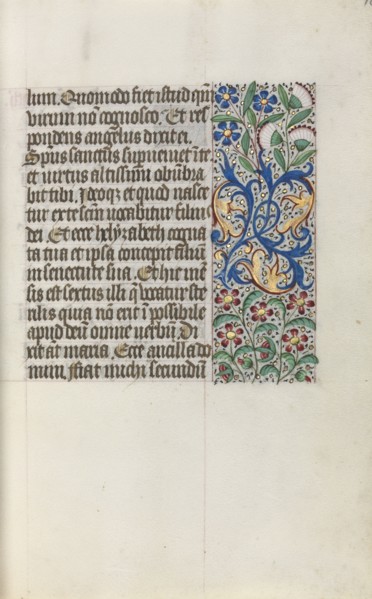 lum. Quomodo fiet istud qm̄
virum nō cognosco. Et res
pondens angelus dixit ei.
Sp̄us sanctus supueniet ī te
et virtus altissimi obūbra
bit tibi. Ideoqz et quod nasce
tur ex te sc̄m vocabitur filius
dei. Et ecce helyzabeth cogna
ta tua et ipsa concepit filiū
in senectute sua. Et hic mē
sis est sextus illi q̄ vocatur ste
rilis quia nō erit īpossibile
apud deū omne verbū. Di
xit at̄ maria. Ecce ancilla do
mini. Fiat michi secundū